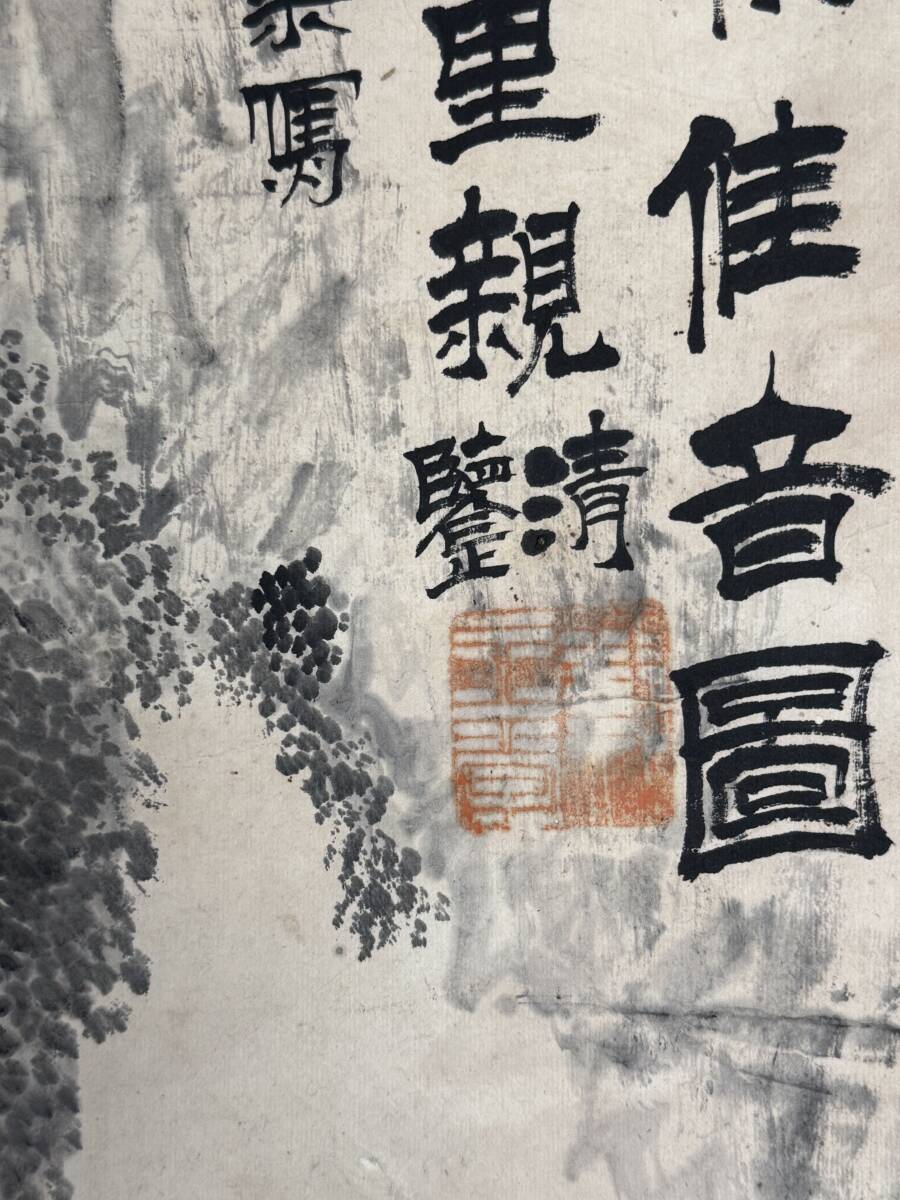 佳音圖
里親
清
鑒
寫